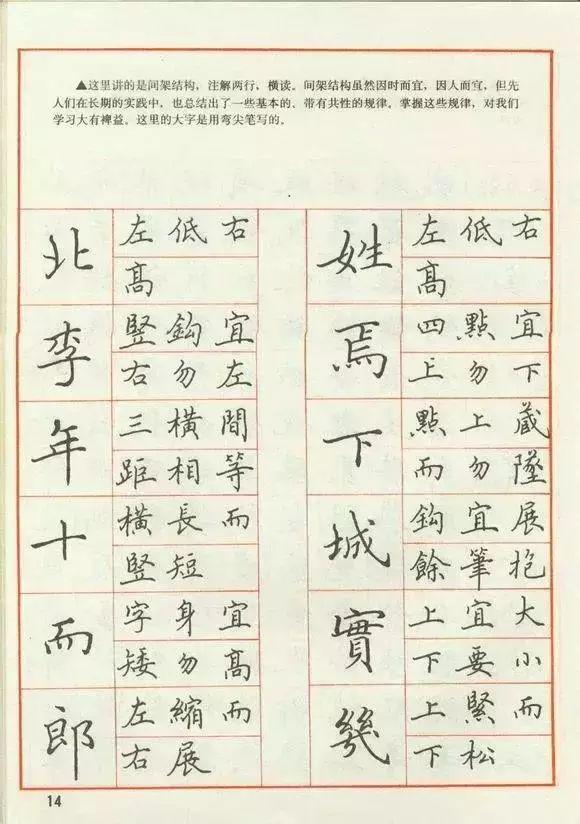 ▲这里讲的是间架结构，注解两行，横读。间架结构虽然因时而宜，因人而宜，但先
人们在长期的实践中，也总结出了一些基本的、带有共性的规律。掌握这些规律，对我们
学习大有裨益。这里的大字是用弯尖笔写的。
北
左低右
高
李
竖鉤宜
右勿左
年
三横間
距相等
十
横長而
竖短
而
字身宜
矮勿高
郎
左縮而
右展
姓
左低右
高
焉
四點宜
上勿下
下
點上藏
而勿墜
城
鉤宜展
餘筆抱
實
上宜大
下要小
幾
上緊而
下松
14